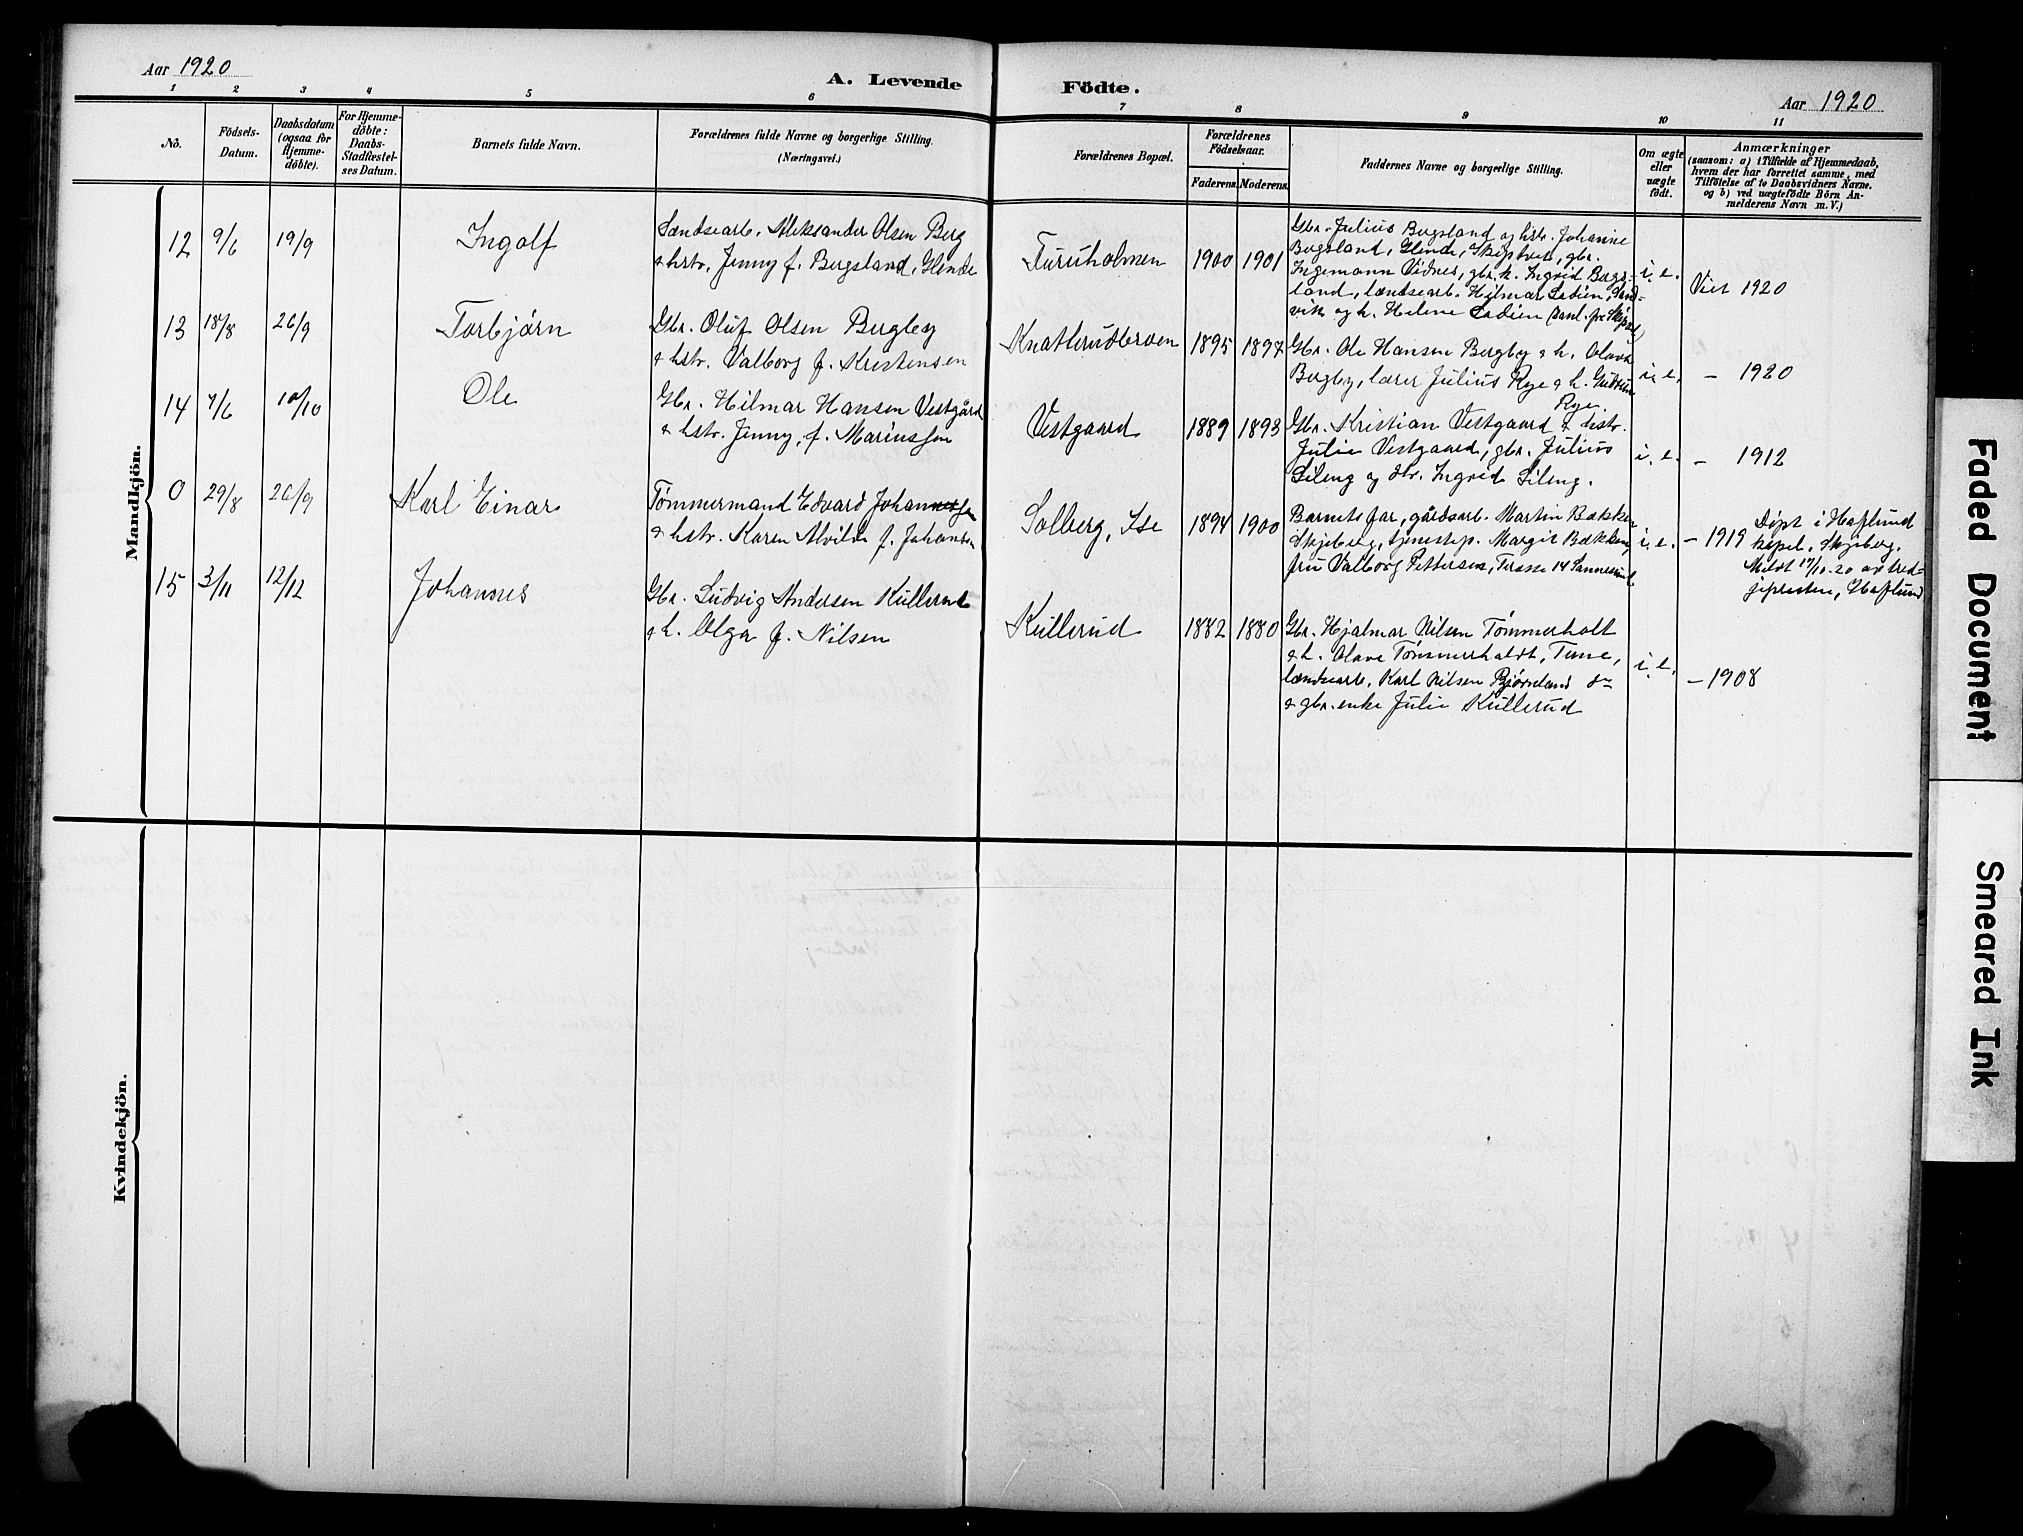 Aar 1920
A. Levende Födte.
Aar 1920
1 2 3 4 5 6 7 8 9 10 11
No.
Födsels-
Datum.
Daabsdatum
(ogsaa for
Hjemme-
döbte).
For Hjemme-
döbte:
Daabs-
Stadfæstel-
ses Datum.
Barnets fulde Navn.
Forældrenes fulde Navne og borgerlige Stilling.
(Næringsvei.)
Forældrenes Bopæl.
Forældrenes
Födselsaar.
Faderens. Moderens.
Faddernes Navne og borgerlige Stilling.
Om ægte
eller
uægte
födt.
Anmærkninger
(saasom: a) i Tilfælde af Hjemmedaab,
hvem der har forrettet samme, med
Tilföielse af to Daabsvidners Navne,
og b) ved uægtefödte Börn An-
melderens Navn m. V.)
Mandkjön.
12 9/6 19/9 Ingolf
Landsearb. Aleksander Olsen Berg
& hstr. Jenny f. Bergsland, Glende
Furuholmen 1900 1901
Gbr. Julius Bergsland og hstr. Johanne
Bergsland, Glende, Skiptvet, gbr.
Ingemann Vidnes, gbr. k. Ingrid Bergs-
land, lændsearb. Hilmar Ladien, Sand-
vik og h. Helene Ladien
i. e. Viet 1920
13 18/8 26/9 Torbjørn
Gbr. Oluf Olsen Bergby
& hstr. Valborg f. Kristensen
Knatterudbroen 1895 1897
Gbr. Ole Hansen Bergby & h. Olava
Bergby, lærer Julius Rye & h. Gudrun
Rye
i. e. — 1920
14 7/6 10/10 Ole
Gbr. Hilmar Hansen Vestgård
& hstr. Jenny, f. Mariussen
Vestgaard 1889 1893
Gbr. Kristian Vestgaard & hstr.
Julie Vestgaard, gbr. Julius
Sileng og dtr. Ingrid Sileng.
i. e. — 1912
0 29/8 26/9 Karl Einar
Tømmermand Edvard Johannessen
& hstr. Karen Alvilde f. Johansen
Solberg, Ise 1894 1900
Barnets far, gårdsarb. Martin Bækken
Skjeberg, tjenestep. Margit Bækken,
fru Valborg Pettersen, Terasse 14 Sannesund
i. e. — 1919 Døpt i Hafslund
kapel, Skjeberg.
Meldt 17/10-20 av sted-
presten, Hafslund
15 3/11 12/12 Johannes
Gbr. Ludvig Andersen Kullerud
& h. Olga f. Nilsen
Kullerud 1882 1880
Gbr. Hjalmar Nilsen Tømmerholt
& h. Olave Tømmerholdt, Tune,
lændsearb. Karl Nilsen Bjørneland
& gbr. enke Julie Kullerud
i. e. — 1908
Kvindekjön.
Faded Document
Smeared Ink